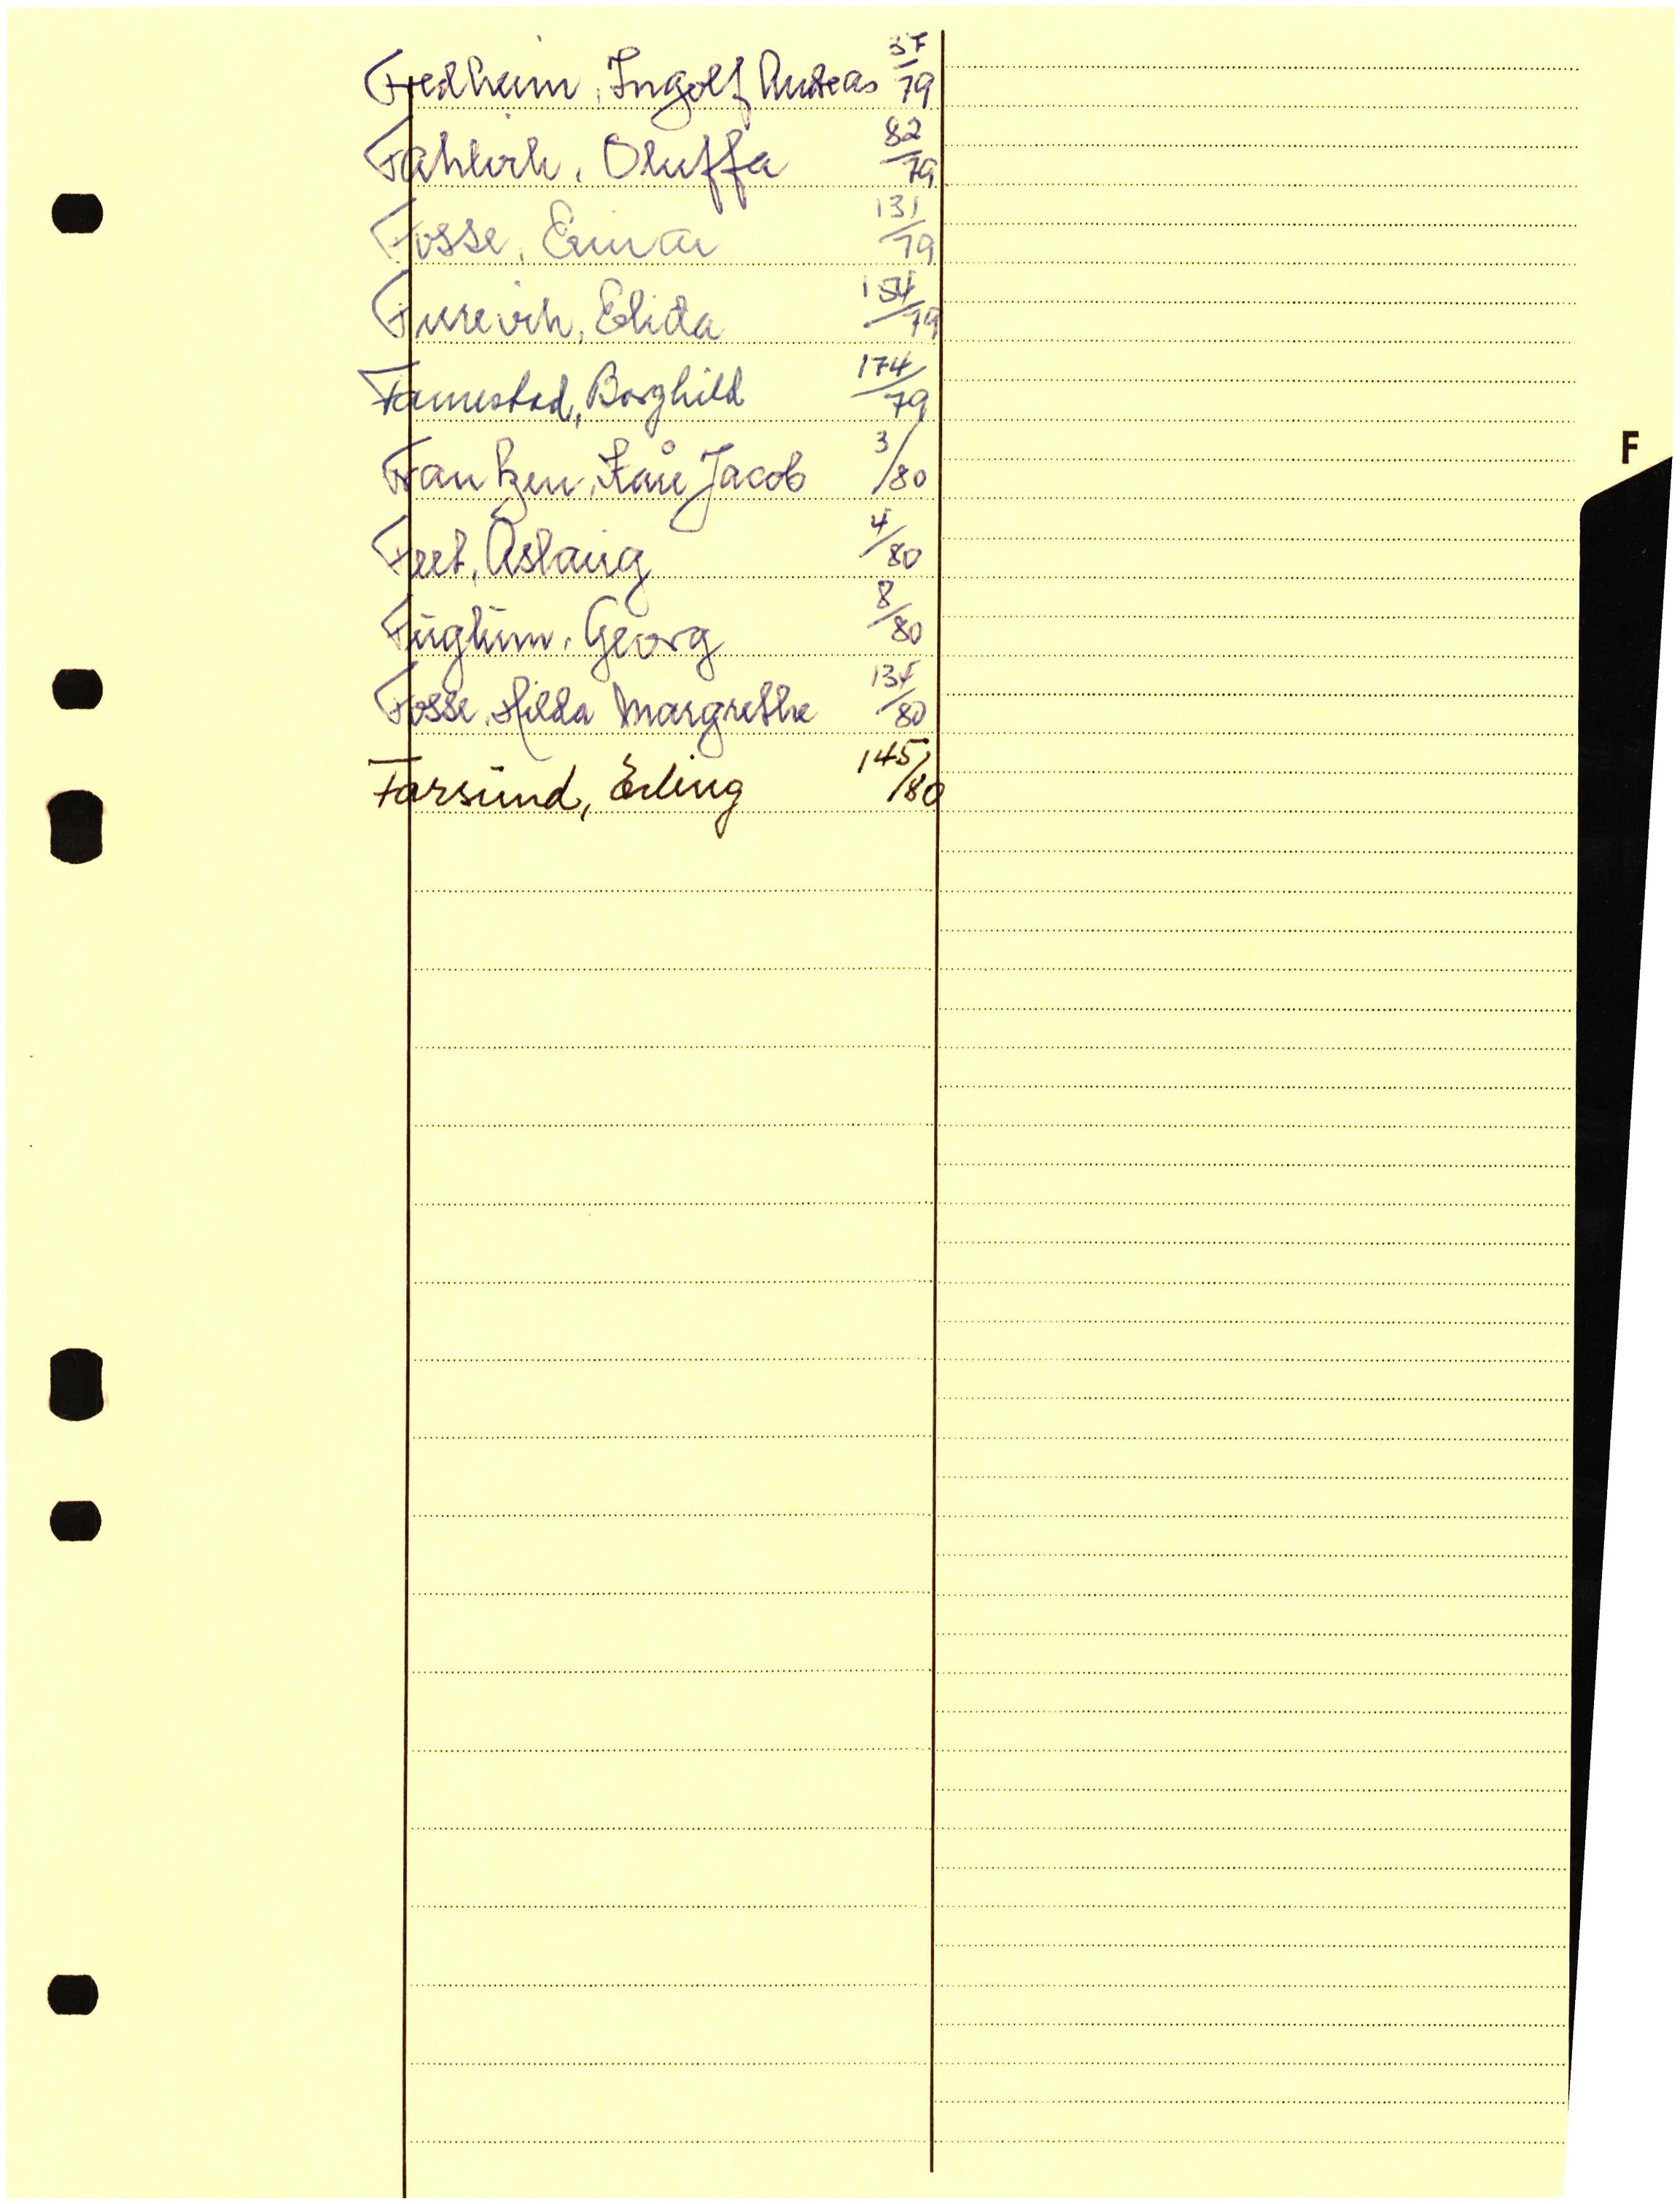 Fredheim, Ingolf Andreas 37/79
Fahlvik, Oluffa 82/79
Fosse, Einar 131/79
Furevik, Elida 154/79
Famestad, Borghild 174/79
Frantzen, Kåre Jacob 3/80
Feet, Aslaug 4/80
Fuglum, Georg 8/80
Fosse, Hilda Margrethe
Farsund, Erling 145/80
F